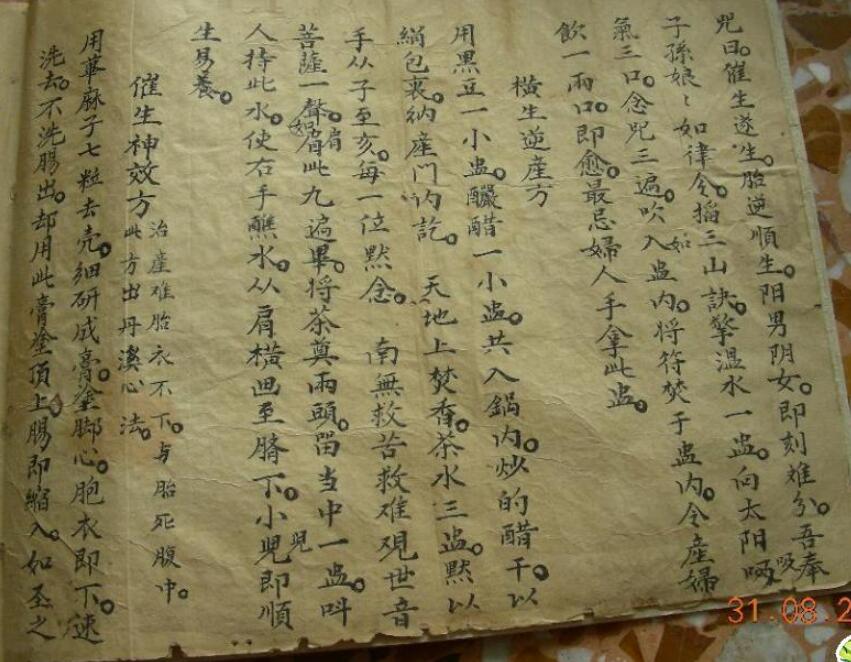 咒曰。催生遂生。胎逆順生。阳男阴女。即刻难分。吾奉
子孫娘〻如律令。搯三山訣。擎温水一盅。向太阳吸
氣三口。念咒三遍。吹入盅内。将符焚于盅内。令産婦
飲一兩口。即愈。最忌婦人手拿此盅。
橫生逆産方
用黑豆一小盅。釅醋一小盅。共入鍋内。炒的醋干。以
絹包裹。纳産門内訖。天地上焚香。茶水三盅。默以
手从子至亥。每一位默念。南無救苦救难观世音
菩薩一聲。如此九遍畢。将茶奠兩頭。留当中一盅。叫
人持此水。使右手蘸水。从肩橫画至臍下。小兒即順
生易養。
催生神效方
治産难胎衣不下。与胎死腹中。
此方出丹溪心法。
用萆麻子七粒去壳。细研成膏。塗脚心。胞衣即下。速
洗去。不洗腸出。却用此膏塗頂上。腸即縮入。如圣之
31.08.2